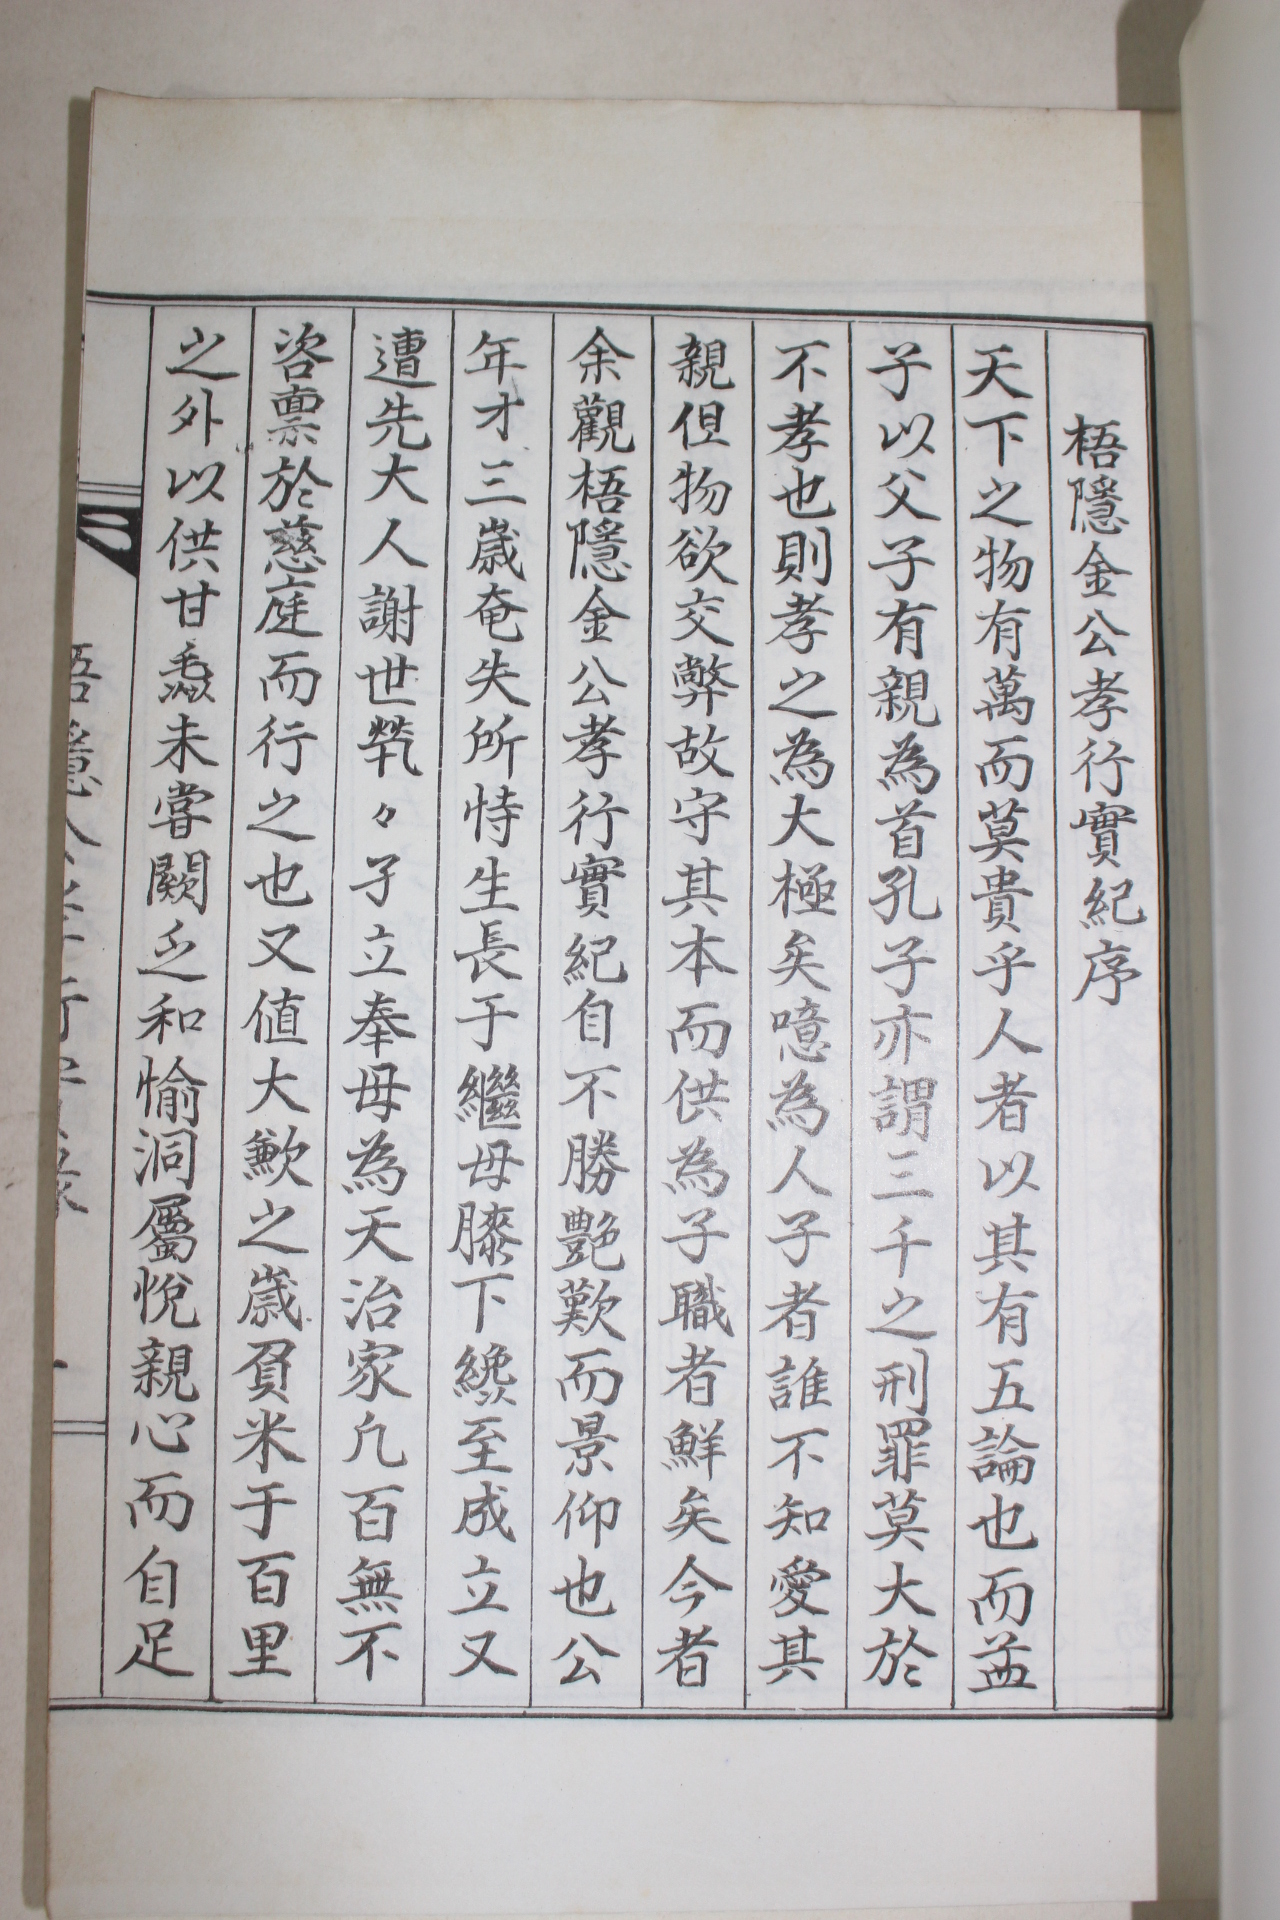 梧隱金公孝行實紀序
天下之物有萬而莫貴乎人者以其有五論也而孟
子以父子有親為首孔子亦謂三千之刑罪莫大於
不孝也則孝之為大極矣噫為人子者誰不知愛其
親但物欲交弊故守其本而供為子職者鮮矣今者
余觀梧隱金公孝行實紀自不勝艶歎而景仰也公
年才三歲奄失所恃生長于繼母膝下纔至成立又
遭先大人謝世煢々孑立奉母為天治家凢百無不
咨禀於慈庭而行之也又値大歉之歲負米于百里
之外以供甘毳未甞闕乏和愉洞屬悅親心而自足